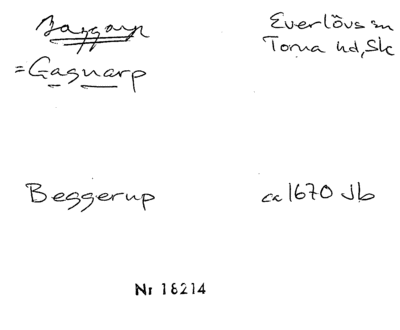 Everlövs sn
Torna hd, Sk
= Gagnarp
Beggerup
ca 1670 Jb
Nr 18214